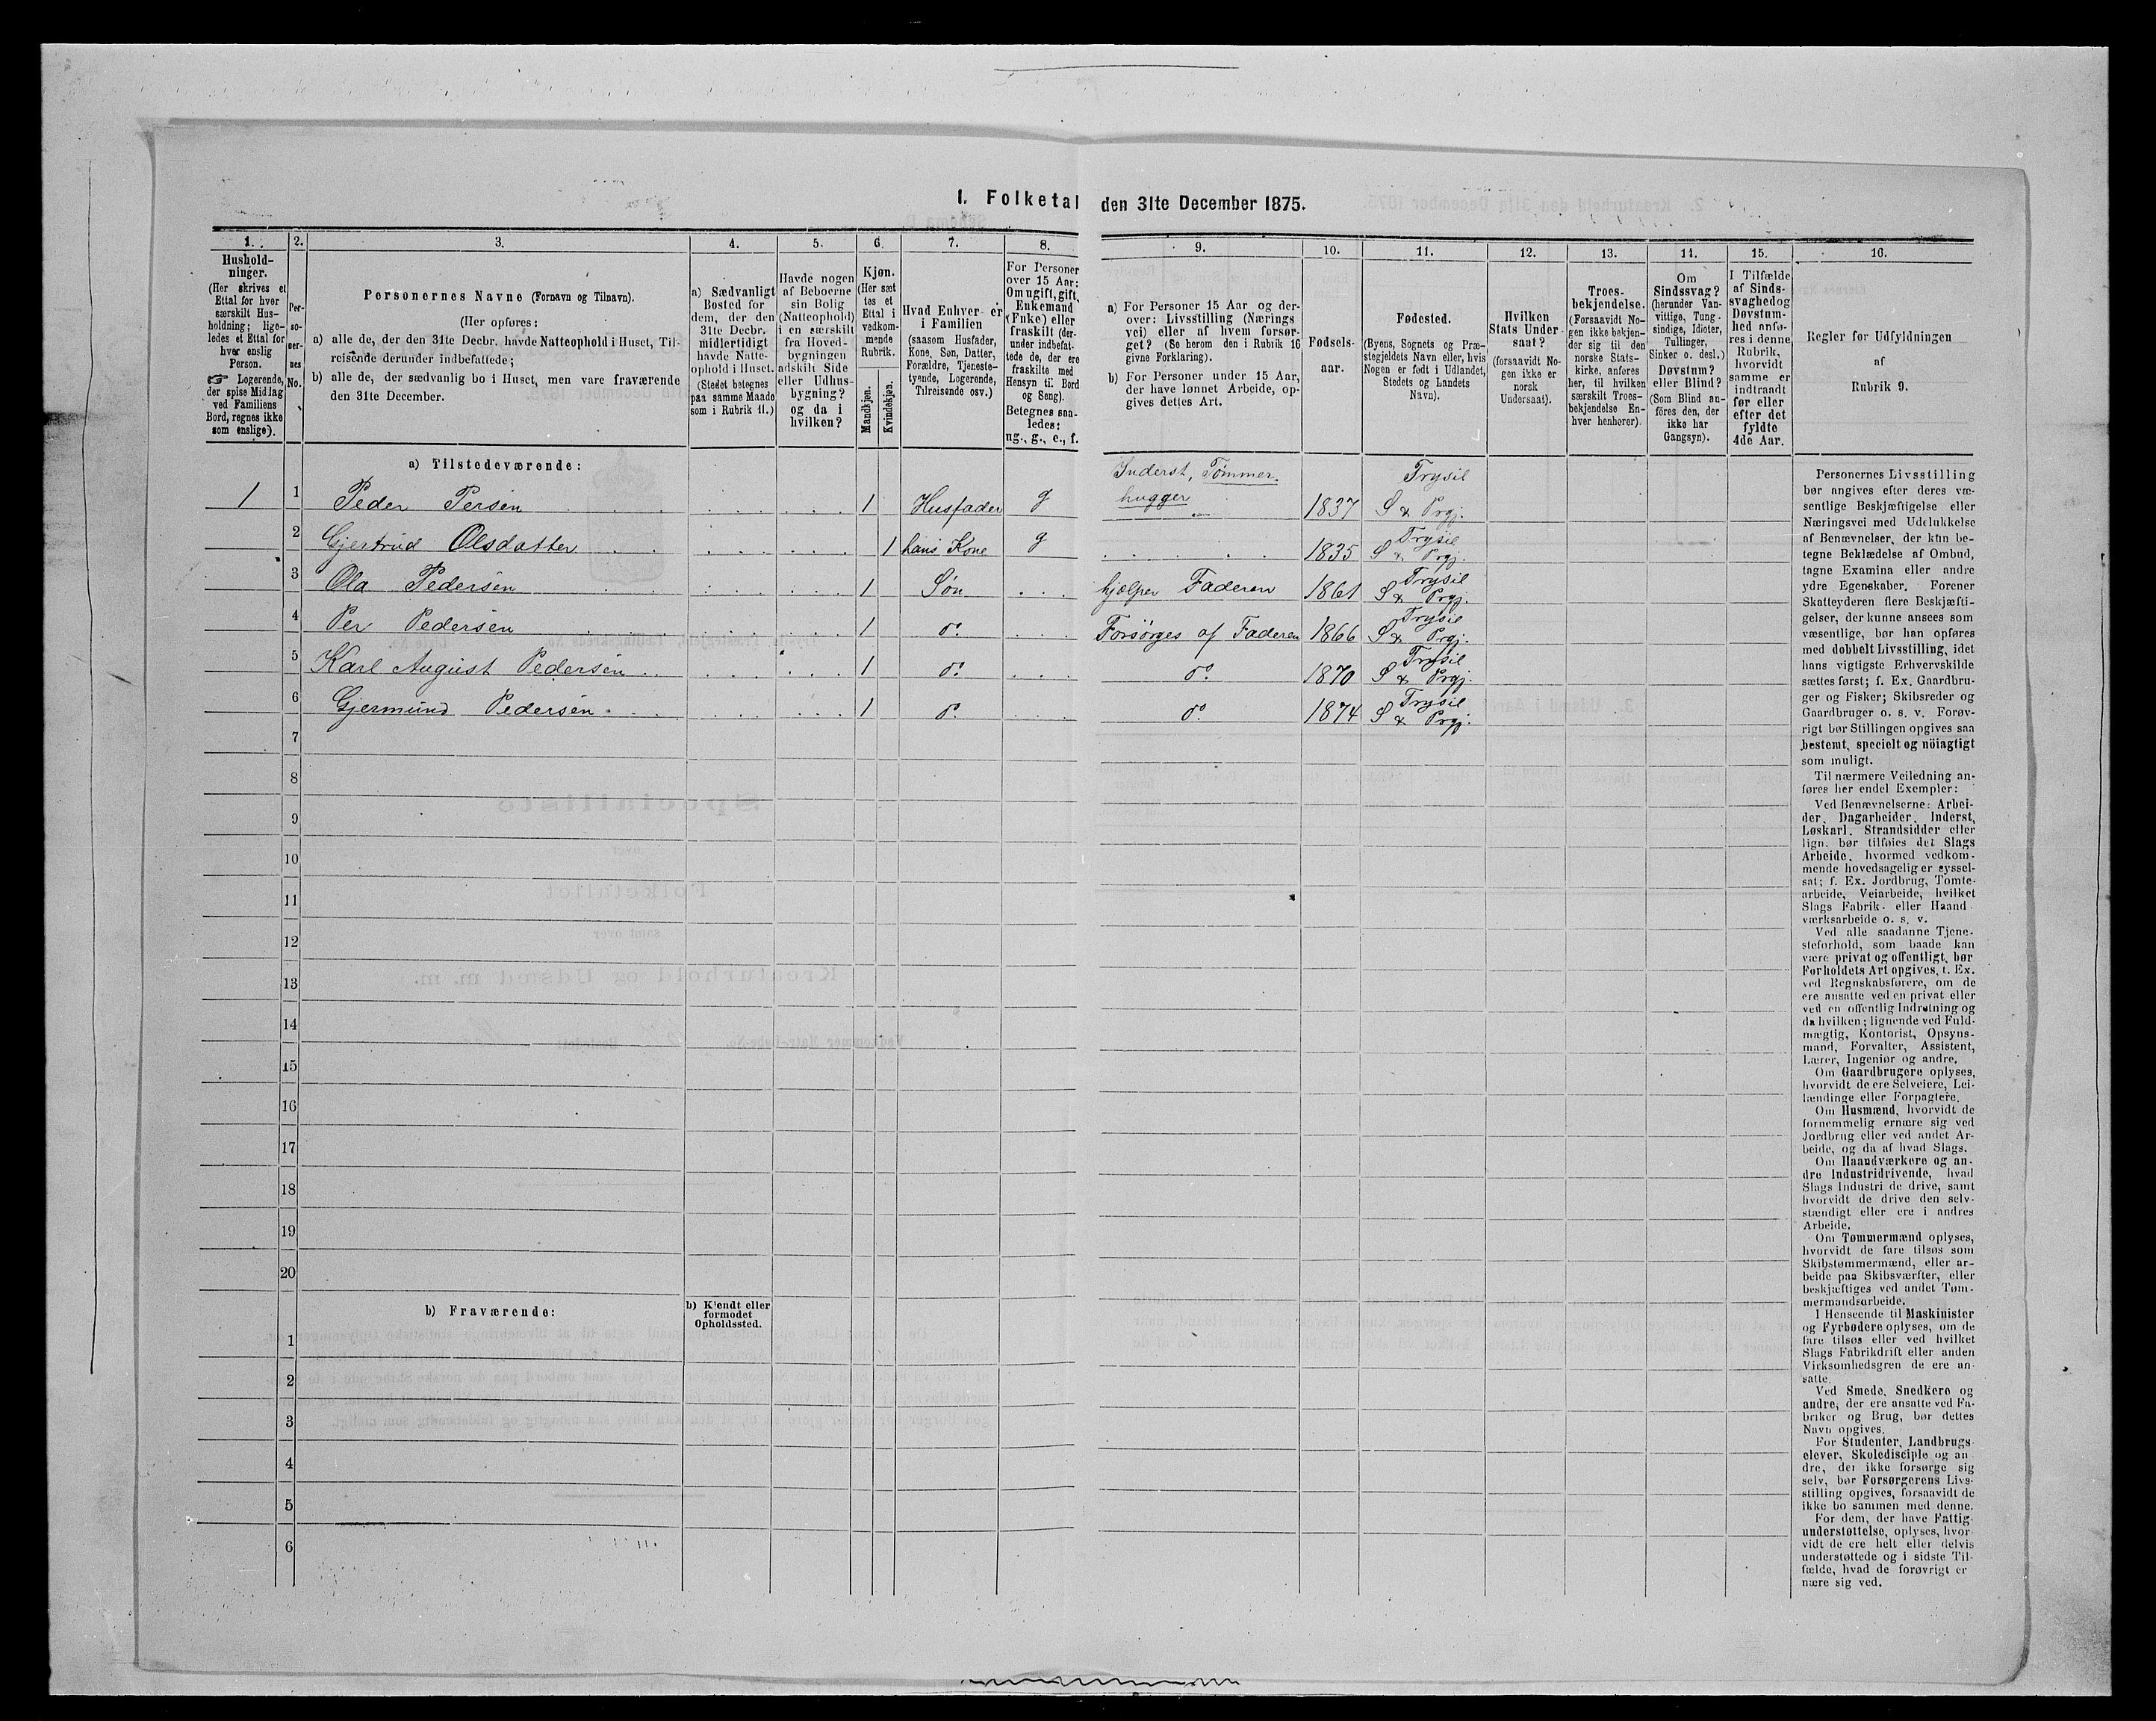 I. Folketal den 31te December 1875.
1. 2. 3. 4. 5. 6. 7. 8. 9. 10. 11. 12. 13. 14. 15. 16.
Hushold-
ninger.
(Her skrives et
Ettal for hver
særskilt Hus-
holdning; lige-
ledes et Ettal for
hver enslig
Person.
☞ Logerende,
der spise Midlag
ved Familiens
Bord, regnes ikke
som enslige).
Per-
so-
ner-
nes
No.
Personernes Navne (Fornavn og Tilnavn).
(Her opføres:
a) alle de, der den 31te Decbr. havde Natteophold i Huset, Til-
reisende derunder indbefattede;
b) alle de, der sædvanlig bo i Huset, men vare fraværende
den 31te December.
a) Sædvanligt
Bosted for
dem, der den
31te Decbr.
midlertidigt
havde Natte-
ophold i Huset.
(Stedet betegnes
paa samme Maade
som i Rubrik 11.)
Havde nogen
af Beboerne
sin Bolig
(Natteophold)
i en særskilt
fra Hoved-
bygningen
adskilt Side
eller Udhus-
bygning?
og da i
hvilken?
Kjøn.
(Her sæt
tes et
Ettal i
vedkom-
mende
Rubrik.
Mandkjøn.
Kvindekjøn.
Hvad Enhver er
i Familien
(saasom Husfader,
Kone, Søn, Datter,
Forældre, Tjeneste-
tyende, Logerende,
Tilreisende osv.)
For Personer
over 15 Aar:
Om ugift, gift,
Enkemand
(Enke) eller
fraskilt (der-
under indbefat-
tede de, der ere
fraskilte med
Hensyn til Bord
og Seng).
Betegnes saa-
ledes:
ng., g., e., f.
a) For Personer 15 Aar og der-
over: Livsstilling (Nærings
vei) eller af hvem forsør-
get? (Se herom den i Rubrik 16
givne Forklaring).
b) For Personer under 15 Aar,
der have lønnet Arbeide, op-
gives dettes Art.
Fødsels-
aar.
Fødested.
(Byens, Sognets og Præ-
stegjeldets Navn eller, hvis
Nogen er født i Udlandet,
Stedets og Landets
Navn).
Hvilken
Stats Under-
saat?
(forsaavidt No-
gen ikke er
norsk
Undersaat).
Troes-
bekjendelse.
(Forsaavidt No-
gen ikke bekjen-
der sig til den
norske Stats-
kirke, anføres
her, til hvilken
særskilt Troes-
bekjendelse En-
hver henhører).
Om
Sindssvag?
(herunder Van-
vittige, Tung-
sindige, Idioter,
Tullinger,
Sinker o. desl.)
Døvstum?
eller Blind?
(Som Blind an-
føres den, der
ikke har
Gangsyn).
I Tilfælde
af Sinds-
svaghed og
Døvstum-
hed anfø-
res i denne
Rubrik,
hvorvidt
samme er
indtraadt
før eller
efter det
fyldte
4de Aar.
Regler for Udfyldningen
af
Rubrik 9.
a) Tilstedeværende:
1 1 Peder Persen 1 Husfader g Inderst, Tømmer-
hugger 1837 Trysil S & Prgj.
2 Gjertrud Olsdatter 1 hans Kone g 1835 Trysil S & Prgj.
3 Ola Pedersen 1 Søn hjælper Faderen 1861 Trysil S & Prgj.
4 Per Pedersen 1 do. Forsørges af Faderen 1866 Trysil S & Prgj.
5 Karl August Pedersen 1 do. do. 1870 Trysil S & Prgj.
6 Gjermund Pedersen 1 do. do. 1874 Trysil S & Prgj.
7
8
9
10
11
12
13
14
15
16
17
18
19
20
b) Fraværende:
b) Kjendt eller
formodet
Opholdssted.
1
2
3
4
5
6
Personernes Livsstilling
bør angives efter deres væ-
sentlige Beskjæftigelse eller
Næringsvei med Udelukkelse
af Benævnelser, der kun be-
tegne Beklædelse af Ombud,
tagne Examina eller andre
ydre Egenskaber. Forener
Skatteyderen flere Beskjæfti-
gelser, der kunne ansees som
væsentlige, bør han opføres
med dobbelt Livsstilling, idet
hans vigtigste Erhvervskilde
sættes først; f. Ex. Gaardbru-
ger og Fisker; Skibsreder og
Gaardbruger o. s. v. Forøv-
rigt bør Stillingen opgives saa
bestemt, specielt og nöiagtigt
som muligt.
Til nærmere Veiledning an-
føres her endel Exempler:
Ved Benævnelserne: Arbei-
der, Dagarbeider, Inderst,
Løskarl, Strandsidder eller
lign. bør tilføies det Slags
Arbeide, hvormed vedkom-
mende hovedsagelig er syssel-
sat; f. Ex. Jordbrug, Tomte-
arbeide, Veiarbeide, hvilket
Slags Fabrik- eller Haand-
værksarbeide o. s. v.
Ved alle saadanne Tjene-
steforhold, som baade kan
være privat og offentligt, bør
Forholdets Art opgives, t. Ex.
ved Regnskabsførere, om de
ere ansatte ved en privat eller
ved en offentlig Indretning og
da hvilken; lignende ved Fuld-
mægtig, Kontorist, Opsyns-
mand, Forvalter, Assistent,
Lærer, Ingeniør og andre.
Om Gaardbrugere oplyses,
hvorvidt de ere Selveiere, Lei-
lændinge eller Forpagtere.
Om Husmænd, hvorvidt de
fornemmelig ernære sig ved
Jordbrug eller ved andet Ar-
beide, og da af hvad Slags.
Om Haandværkere og an-
dre Industridrivende, hvad
Slags Industri de drive, samt
hvorvidt de drive den selv-
stændigt eller ere i andres
Arbeide.
Om Tømmermænd oplyses,
hvorvidt de fare tilsøs som
Skibstømmermænd, eller ar-
beide paa Skibsværfter, eller
beskjæftiges ved andet Tøm-
mermandsarbeide.
I Henseende til Maskinister
og Fyrbødere oplyses, om de
fare tilsøs eller ved hvilket
Slags Fabrikdrift eller anden
Virksomhedsgren de ere an-
satte.
Ved Smede, Snedkere og
andre, der ere ansatte ved Fa-
briker og Brug, bør dettes
Navn opgives.
For Studenter, Landbrugs-
elever, Skoledisciple og an
dre, der ikke forsørge sig
selv, bør Forsørgerens Livs-
stilling opgives, forsaavidt de
ikke bo sammen med denne.
For dem, der have Fattig-
understøttelse, oplyses, hvor
vidt de ere helt eller delvis
understøttede og i sidste Til-
fælde, hvad de forøvrigt er
nære sig ved.